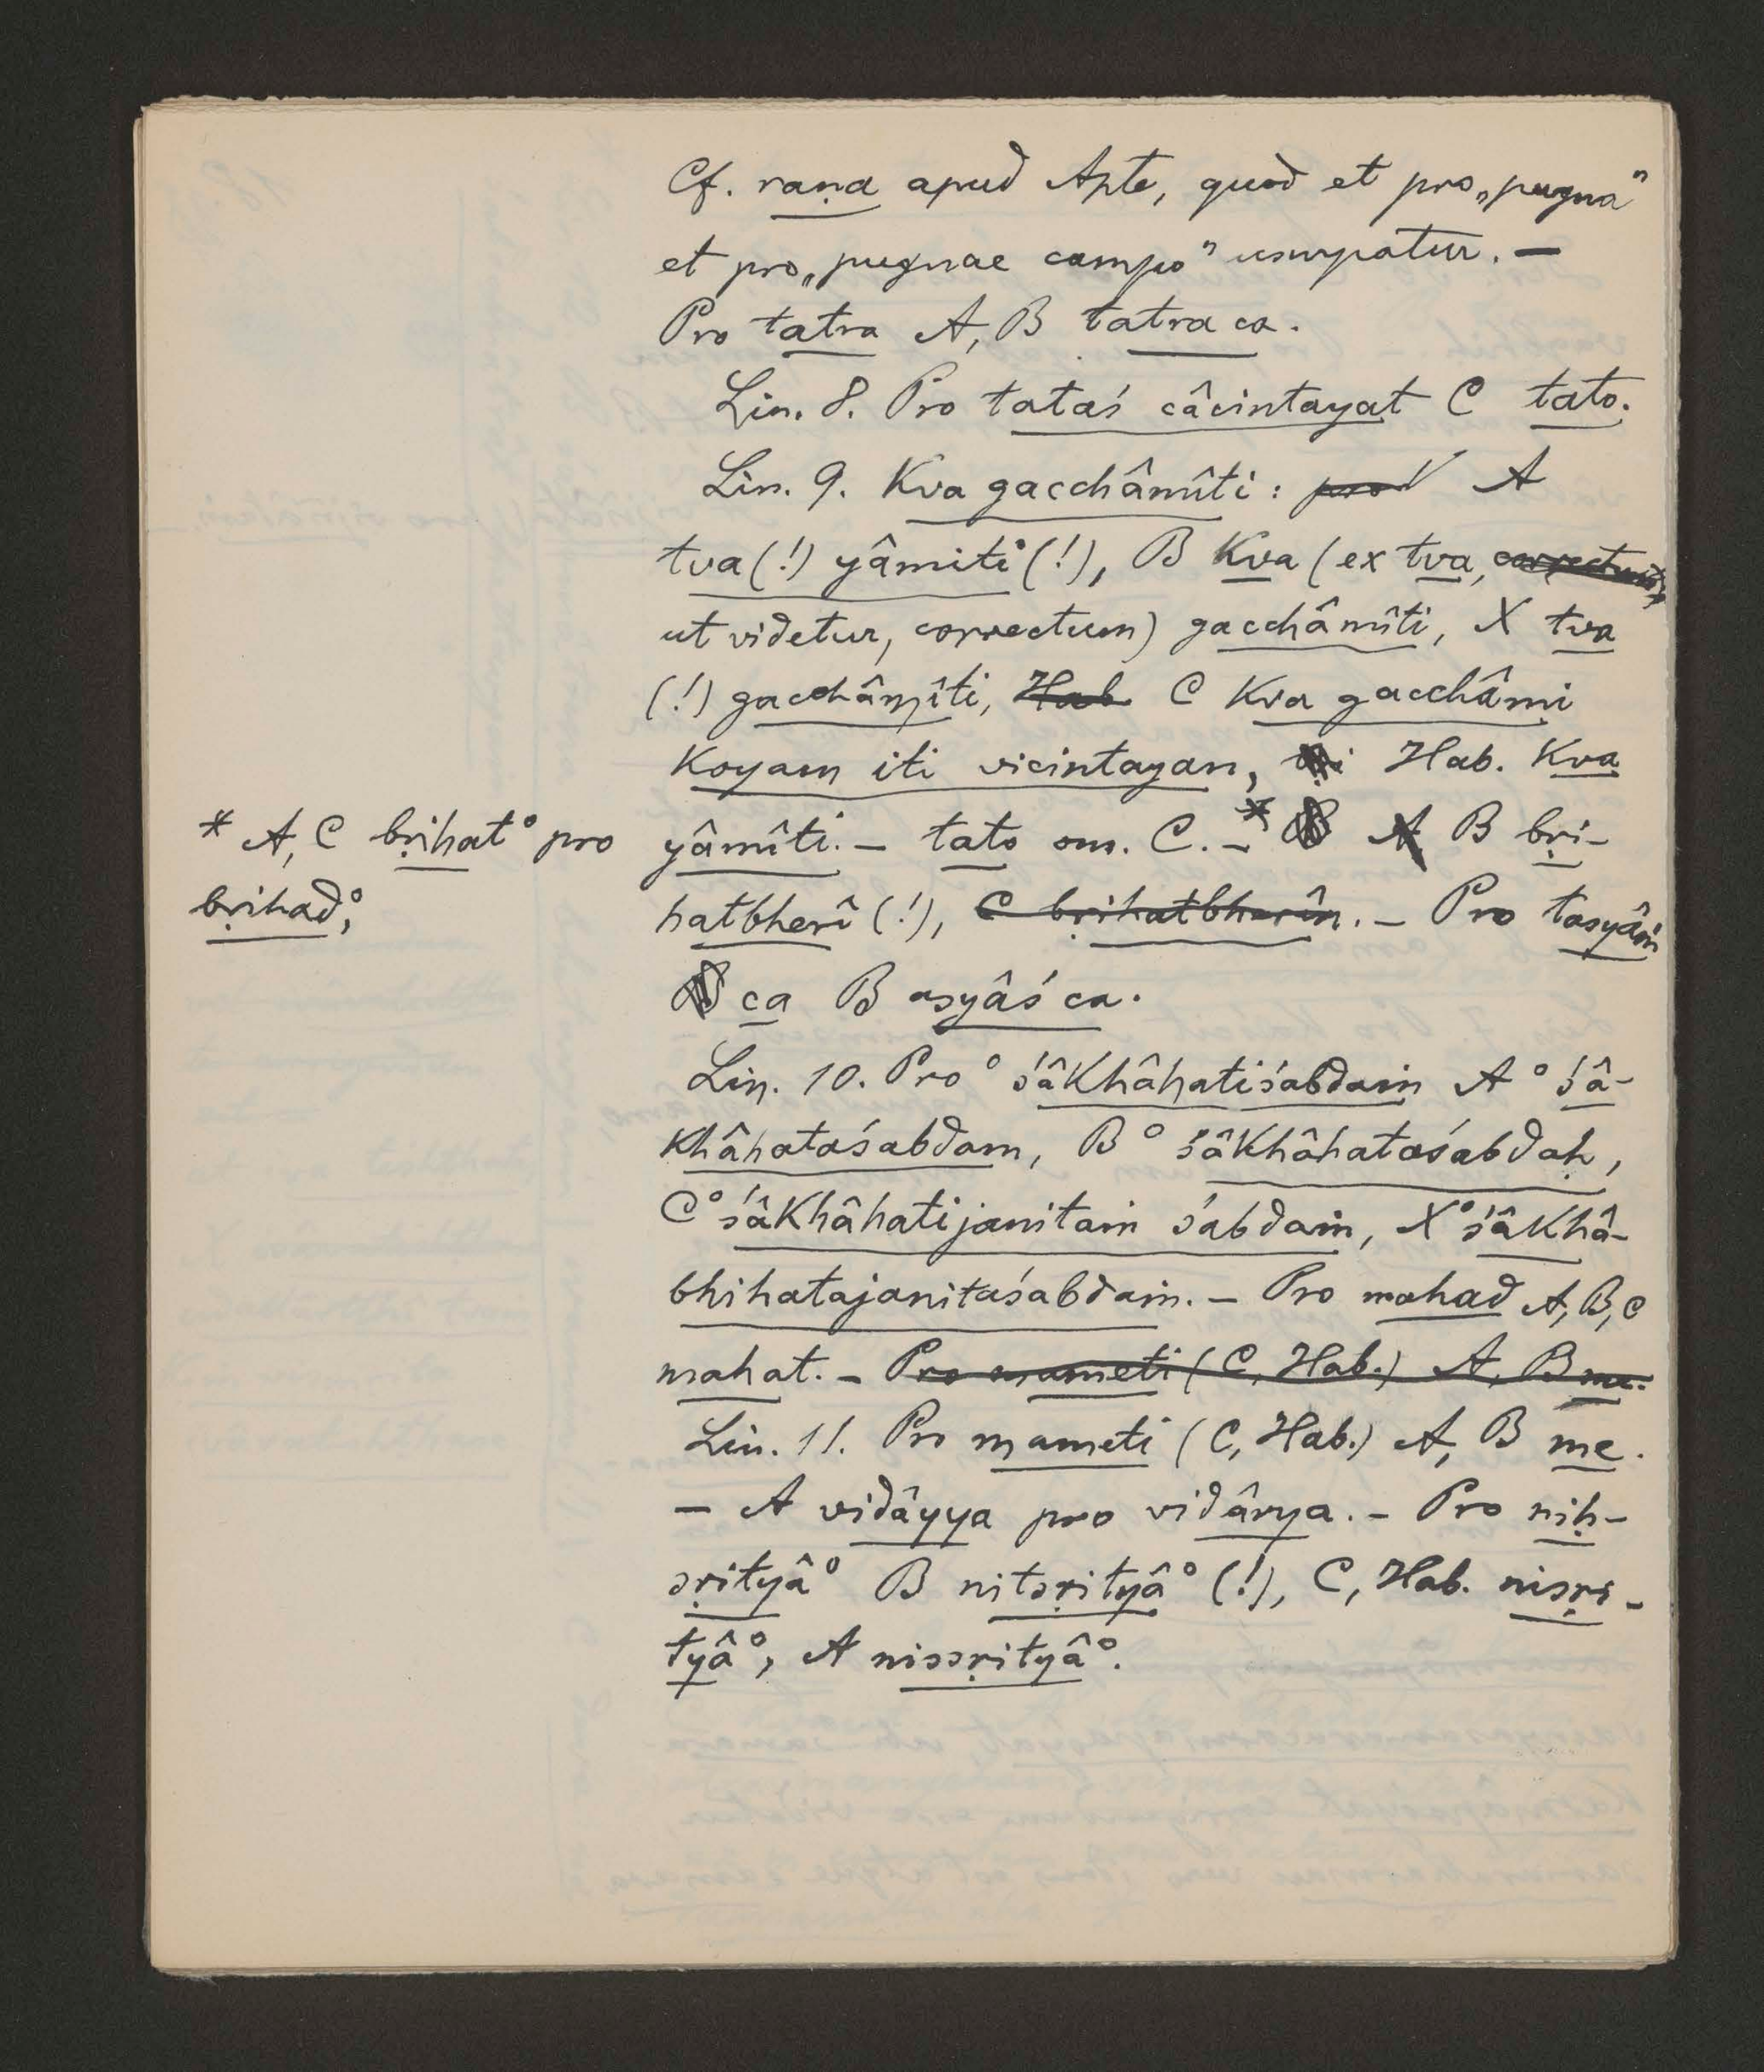 Cf. raṇa apud Apte, quod et pro „pugna”
et pro „pugnae campo” usurpatur. —
Pro tatra A, B tatra ca.
Lin. 8. Pro tataś câcintayat C tato.
Lin. 9. Kva gacchâmîti: pro A
tva (!) yâmiti (!), B Kva (ex tva, correctum,
ut videtur, correctum) gacchâmîti, X tva
(!) gacchâmîti, Hab C Kva gacchâmi
Koyam iti vicintayan, Hab. Kva
yâmîti. – tato om. C. –* A B bṛi-
hatbherî (!), C bṛihatbherîn. – Pro tasyâṁ
ca B asyâś ca.
* A, C bṛihat° pro
bṛihad°;
Lin. 10. Pro °śâkhâhatiśabdaṁ A °śâ-
khâhataśabdam, B °śâkhâhataśabdaḥ,
C °śâkhâhatijanitaṁ śabdaṁ, X °śâkhâ-
bhihatajanitaśabdaṁ. – Pro mahad A, B, C
mahat. – Pro mameti (C, Hab.) A, B me.
Lin. 11. Pro mameti (C, Hab.) A, B me.
– A vidâyya pro vidârya. – Pro niḥ-
sṛityâ° B nitsṛityâ° (!), C, Hab. nisṛi-
tyâ°, A nissṛityâ°.